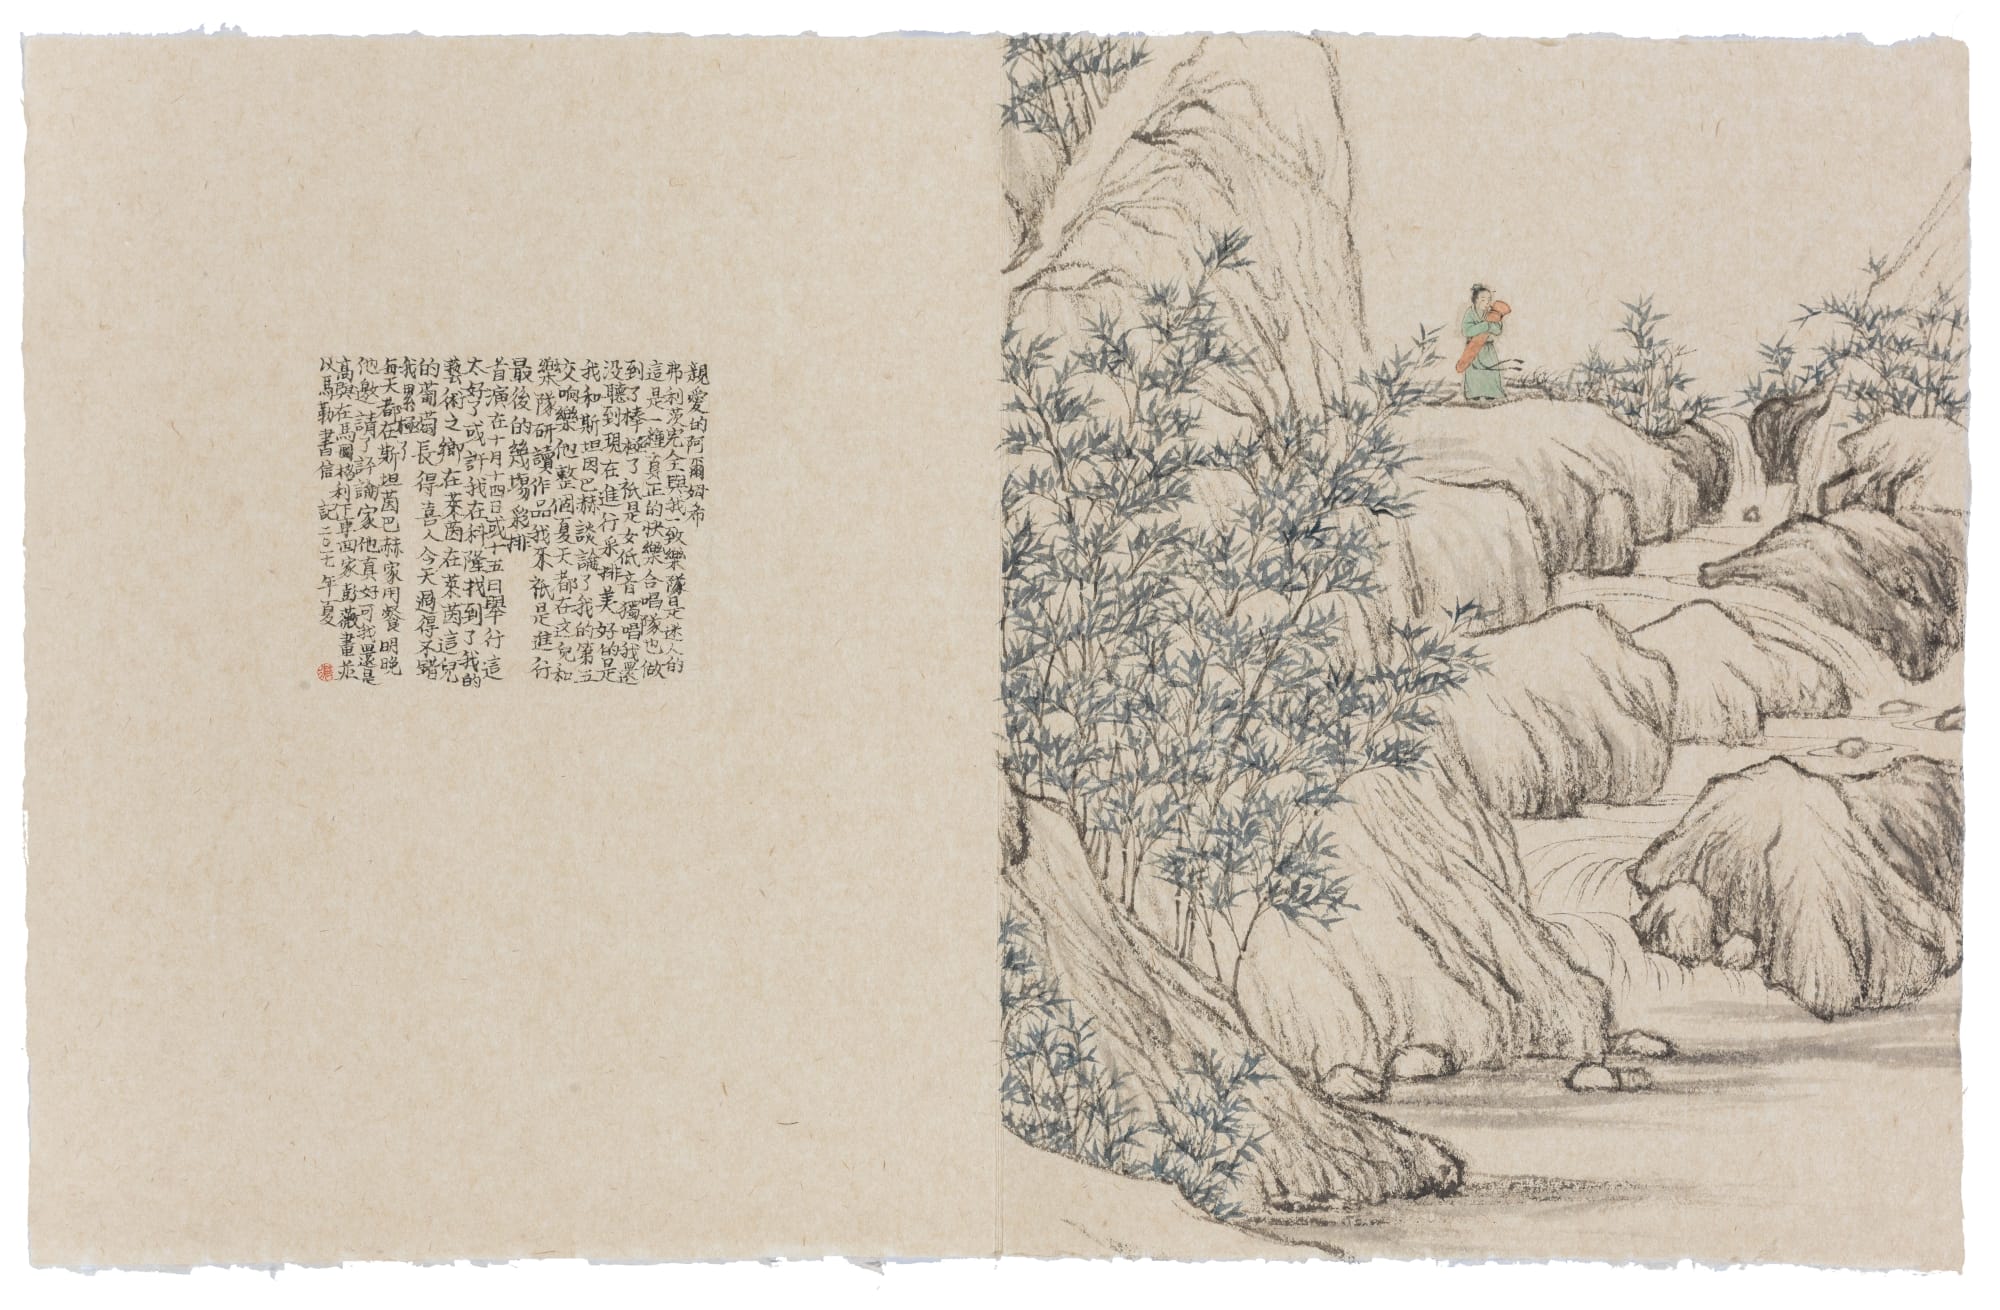 親愛的阿爾姆希
弗利茨完全與我一致樂隊是迷人的
這是一種真正的快樂合唱隊也做
到了棒極了祇是女低音獨唱我還
没聽到現在進行采排美好的是
我和斯坦因巴赫談論了我的第五
交响樂他整個夏天都在这兒和
樂隊研讀作品我來祇是進行
最後的幾場彩排
首演在十月十四日或十五日舉行這
太好了或許我在科隆找到了我的
藝術之鄉在萊茵在萊茵這兒
的葡萄長得喜人今天過得不錯
我累極了
每天都在斯坦茵巴赫家用餐明晚
他邀請了評論家他真好可我還是
高興在馬圖格利下車回家彭薇畫並
以馬勒書信 記二〇一七年夏